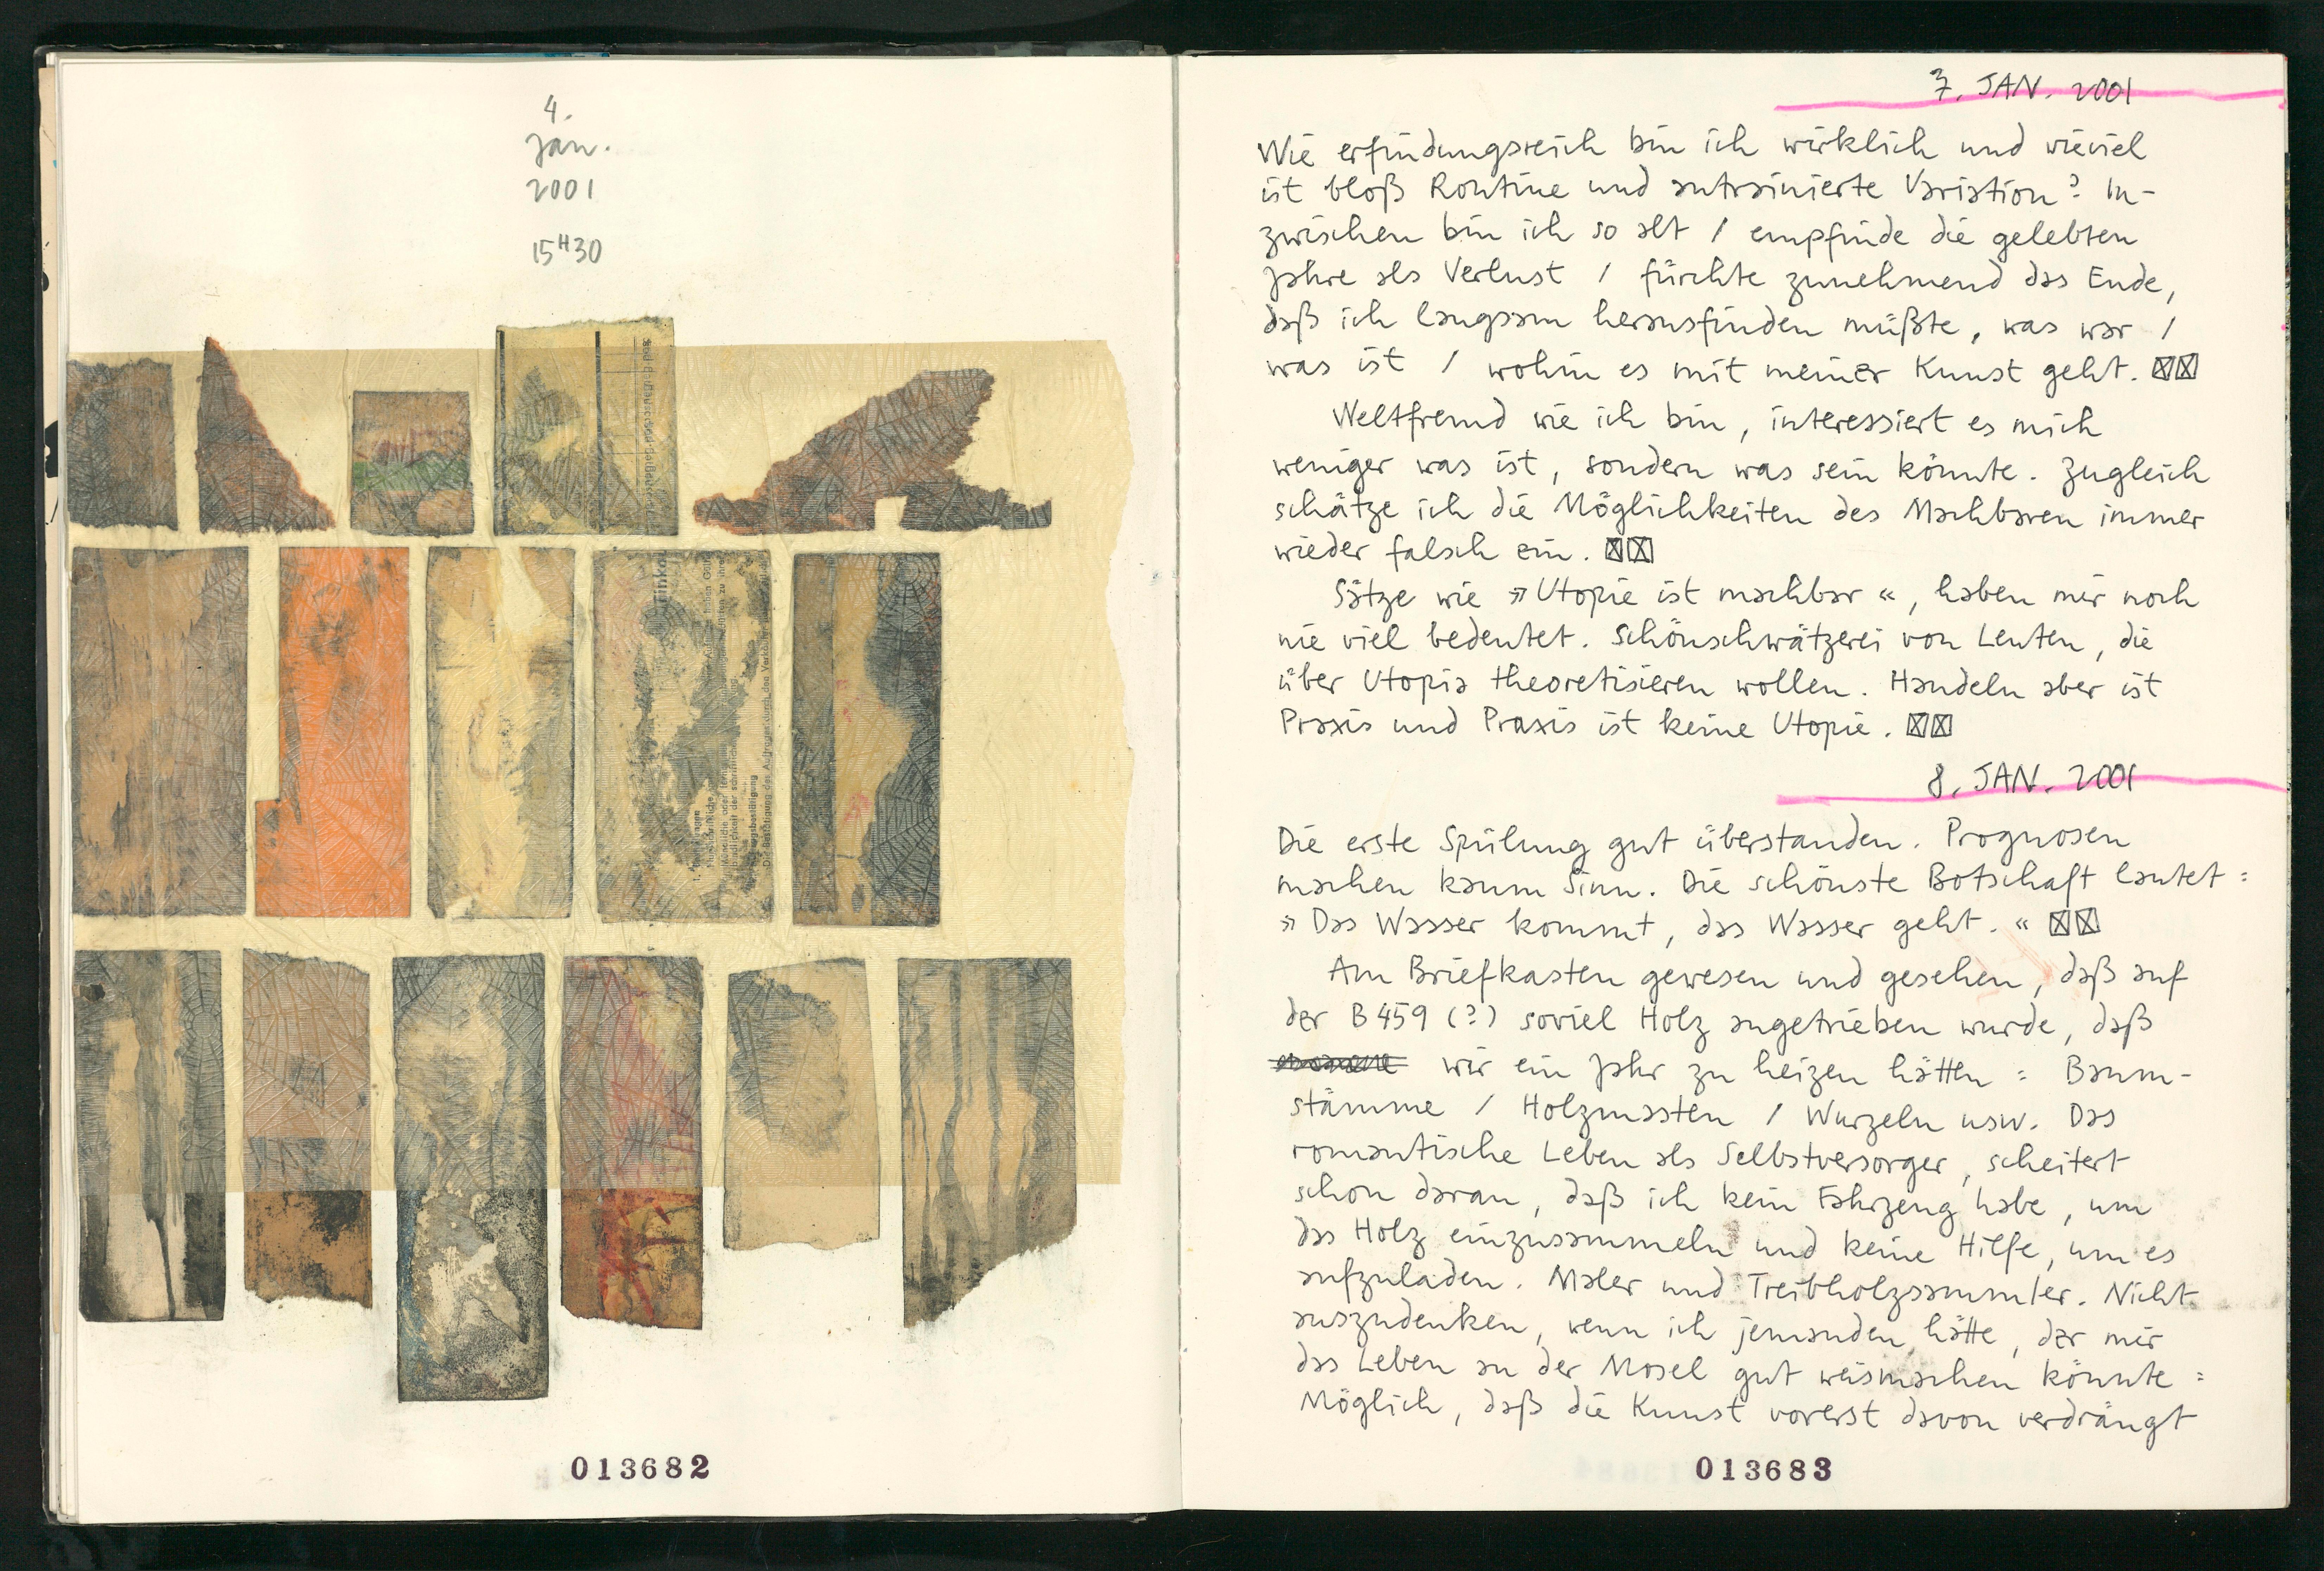 4.
Jan.
2001
15H30
013682
7. JAN. 2001
Wie erfindungsreich bin ich wirklich und wieviel
ist bloß Routine und antrainierte Variation? In-
zwischen bin ich so alt / empfinde die gelebten
Jahre als Verlust / fürchte zunehmend das Ende,
daß ich langsam herausfinden müßte, was war /
was ist / wohin es mit meiner Kunst geht.
Weltfremd wie ich bin, interessiert es mich
weniger was ist, sondern was sein könnte. Zugleich
schätze ich die Möglichkeiten des Machbaren immer
wieder falsch ein.
Sätze wie »Utopie ist machbar«, haben mir noch
nie viel bedeutet. Schönschwätzerei von Leuten, die
über Utopia theoretisieren wollen. Handeln aber ist
Praxis und Praxis ist keine Utopie.
8. JAN. 2001
Die erste Spülung gut überstanden. Prognosen
machen kaum Sinn. Die schönste Botschaft lautet:
»Das Wasser kommt, das Wasser geht.«
Am Briefkasten gewesen und gesehen, daß auf
der B 459 (?) soviel Holz angetrieben wurde, daß
wir ein Jahr zu heizen hätten: Baum-
stämme / Holzmasten / Wurzeln usw. Das
romantische Leben als Selbstversorger, scheitert
schon daran, daß ich kein Fahrzeug habe, um
das Holz einzusammeln und keine Hilfe, um es
aufzuladen. Maler und Treibholzsammler. Nicht
auszudenken, wenn ich jemanden hätte, der mir
das Leben an der Mosel gut weismachen könnte:
Möglich, daß die Kunst vorerst davon verdrängt
013683